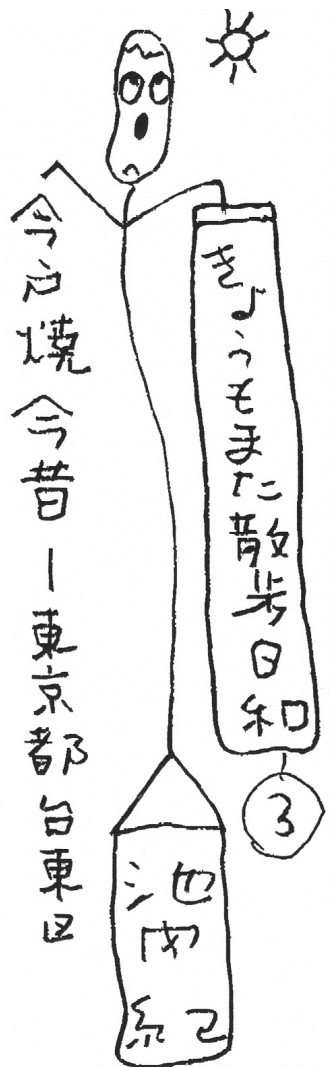 きょうもまた散歩日和
3
今戸焼今昔ー東京都台東区
池内紀